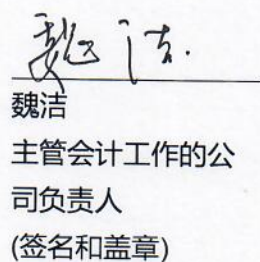 魏洁
魏洁
主管会计工作的公
司负责人
(签名和盖章)